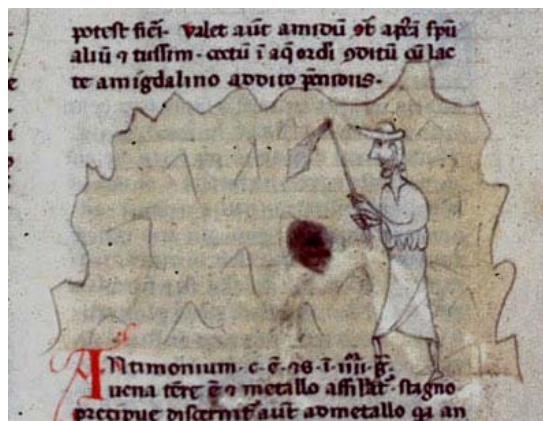 potest fieri. Valet aūt amidū ↄt̄ ap̄ca spū
aliū ⁊ tussim. coctū ī aq̄ ordi ↄditū cū lac
te amigdalino addito p̄enidiis.
Antimonium. c. ē. ⁊ s̄. ī. iiii. g̃.
uena t̄re ē ⁊ metallo assīlat̄. stagno
precipue discernit̄. aūt a metallo q̄a an